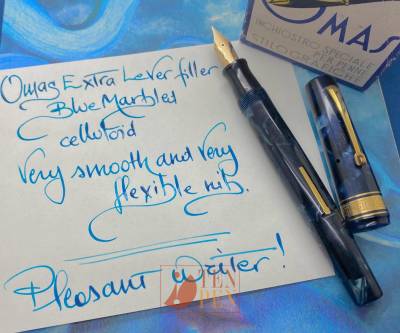 OMAS
INCHIOSTRO SPECIALE
PER PENNE
STILOGRAFICHE
Omas Extra Lever filler
Blue Marbled
celluloid
Very smooth and very
flexible nib.
Pleasant writer!
TEN
PEN